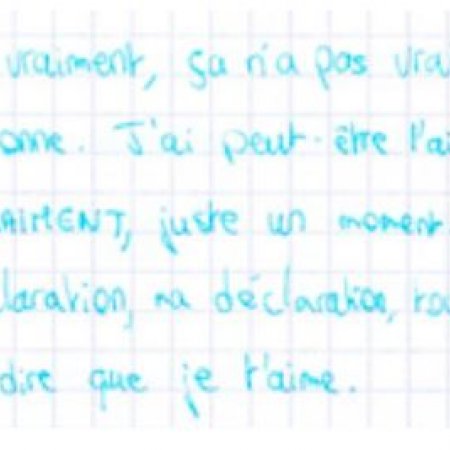 vraiment, ça n'a pas vrai
onne. J'ai peut-être l'ai
AIMENT, juste un moment
laration, ma déclaration, tou
dire que je t'aime.